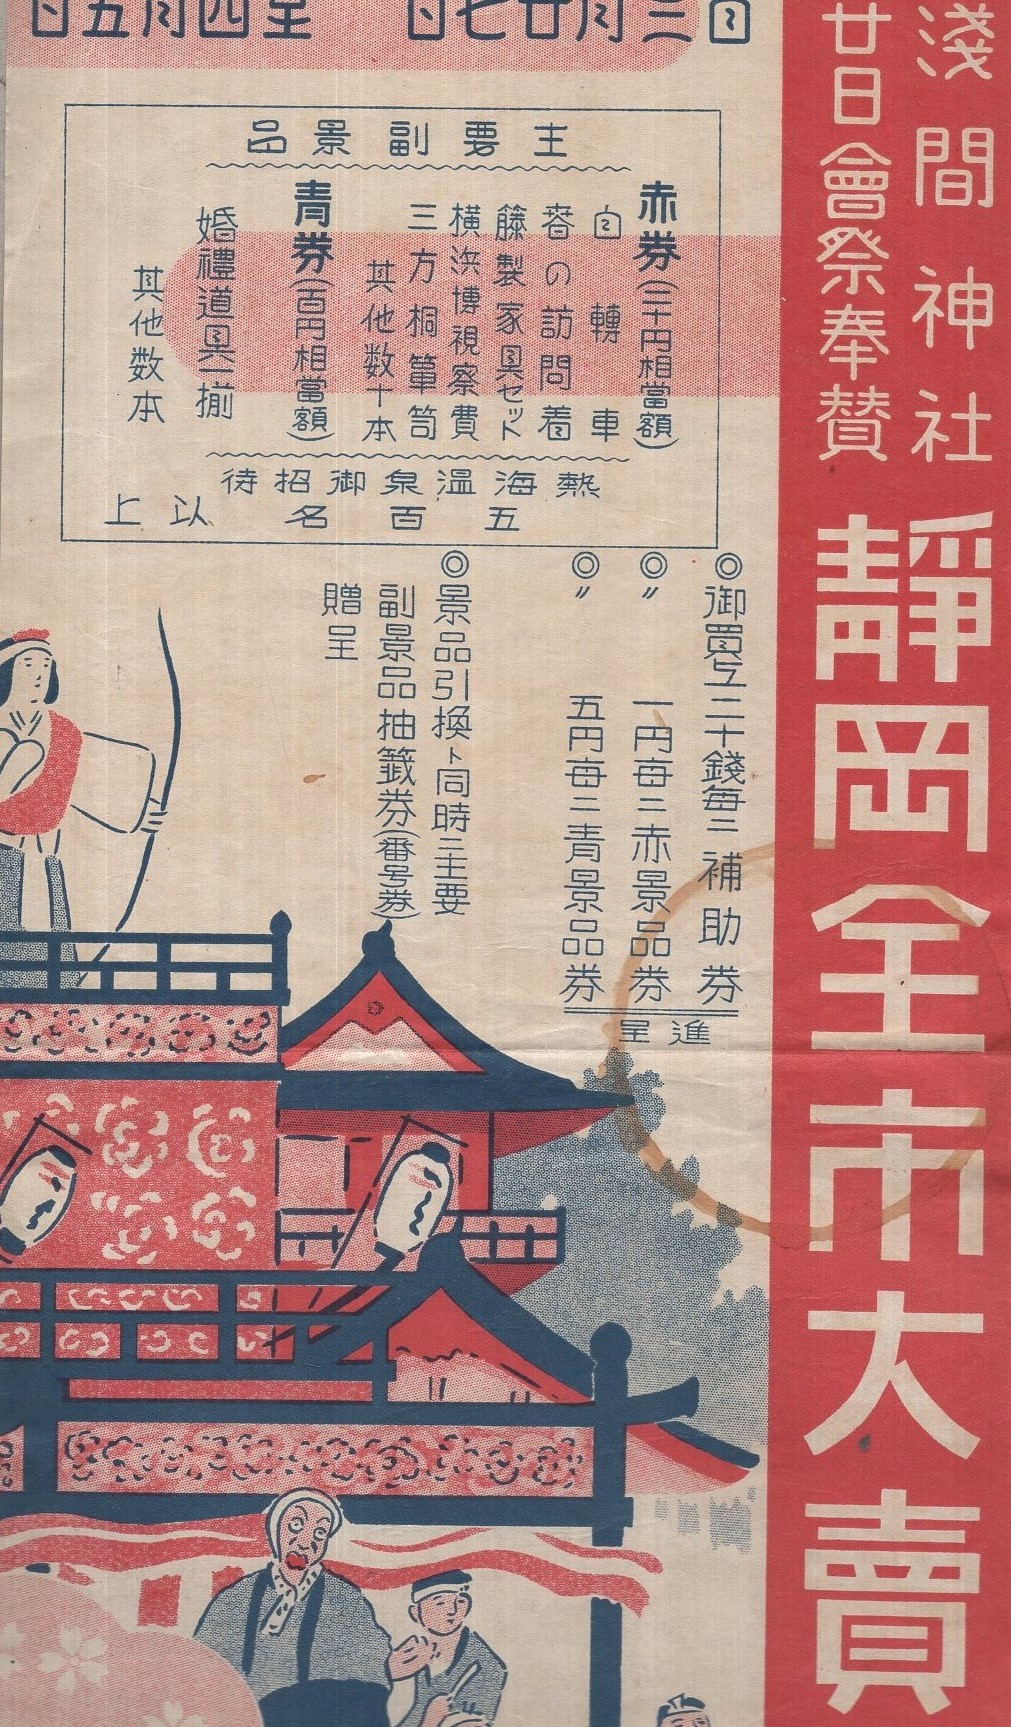 淺間神社
廿日會祭奉賛
靜岡全市大賣
自三月廿七日 至四月五日
主要副景品
赤券(二十円相當額)
自轉車
春の訪問着
籐製家具セット
横浜博視察費
三方桐簞笥
其他数十本
青券(百円相當額)
婚禮道具一揃
其他数本
熱海温泉御招待
五百名 以上
◎御買上二十錢每ニ補助券
◎〃 一円每ニ赤景品券
◎〃 五円每ニ青景品券
進呈
◎景品引換ト同時ニ主要
副景品抽籤券(番号券)
贈呈